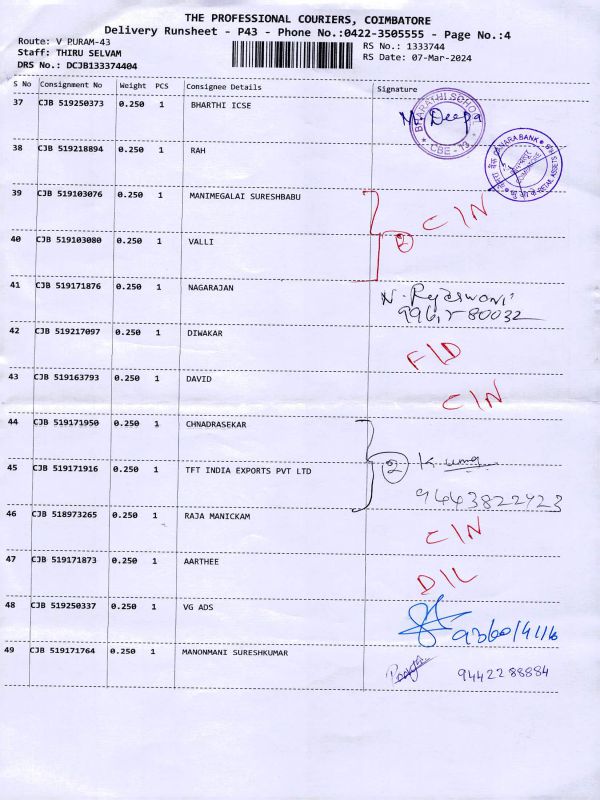 THE PROFESSIONAL COURIERS, COIMBATORE
Delivery Runsheet - P43 - Phone No.:0422-3505555 - Page No.:4
Route: V PURAM-43
Staff: THIRU SELVAM
DRS No.: DCJB133374404
RS No.: 1333744
RS Date: 07-Mar-2024
S No Consignment No Weight PCS Consignee Details Signature
37 CJB 519250373 0.250 1 BHARTHI ICSE
BHARATHI SCHOOL
CBE - 13
38 CJB 519218894 0.250 1 RAH
CANARA BANK
39 CJB 519103076 0.250 1 MANIMEGALAI SURESHBABU C/N
2
40 CJB 519103080 0.250 1 VALLI
41 CJB 519171876 0.250 1 NAGARAJAN
42 CJB 519217097 0.250 1 DIWAKAR
43 CJB 519163793 0.250 1 DAVID C/N
44 CJB 519171950 0.250 1 CHNADRASEKAR
2
45 CJB 519171916 0.250 1 TFT INDIA EXPORTS PVT LTD
46 CJB 518973265 0.250 1 RAJA MANICKAM C/N
47 CJB 519171873 0.250 1 AARTHEE D/L
48 CJB 519250337 0.250 1 VG ADS
49 CJB 519171764 0.250 1 MANONMANI SURESHKUMAR 9442288884